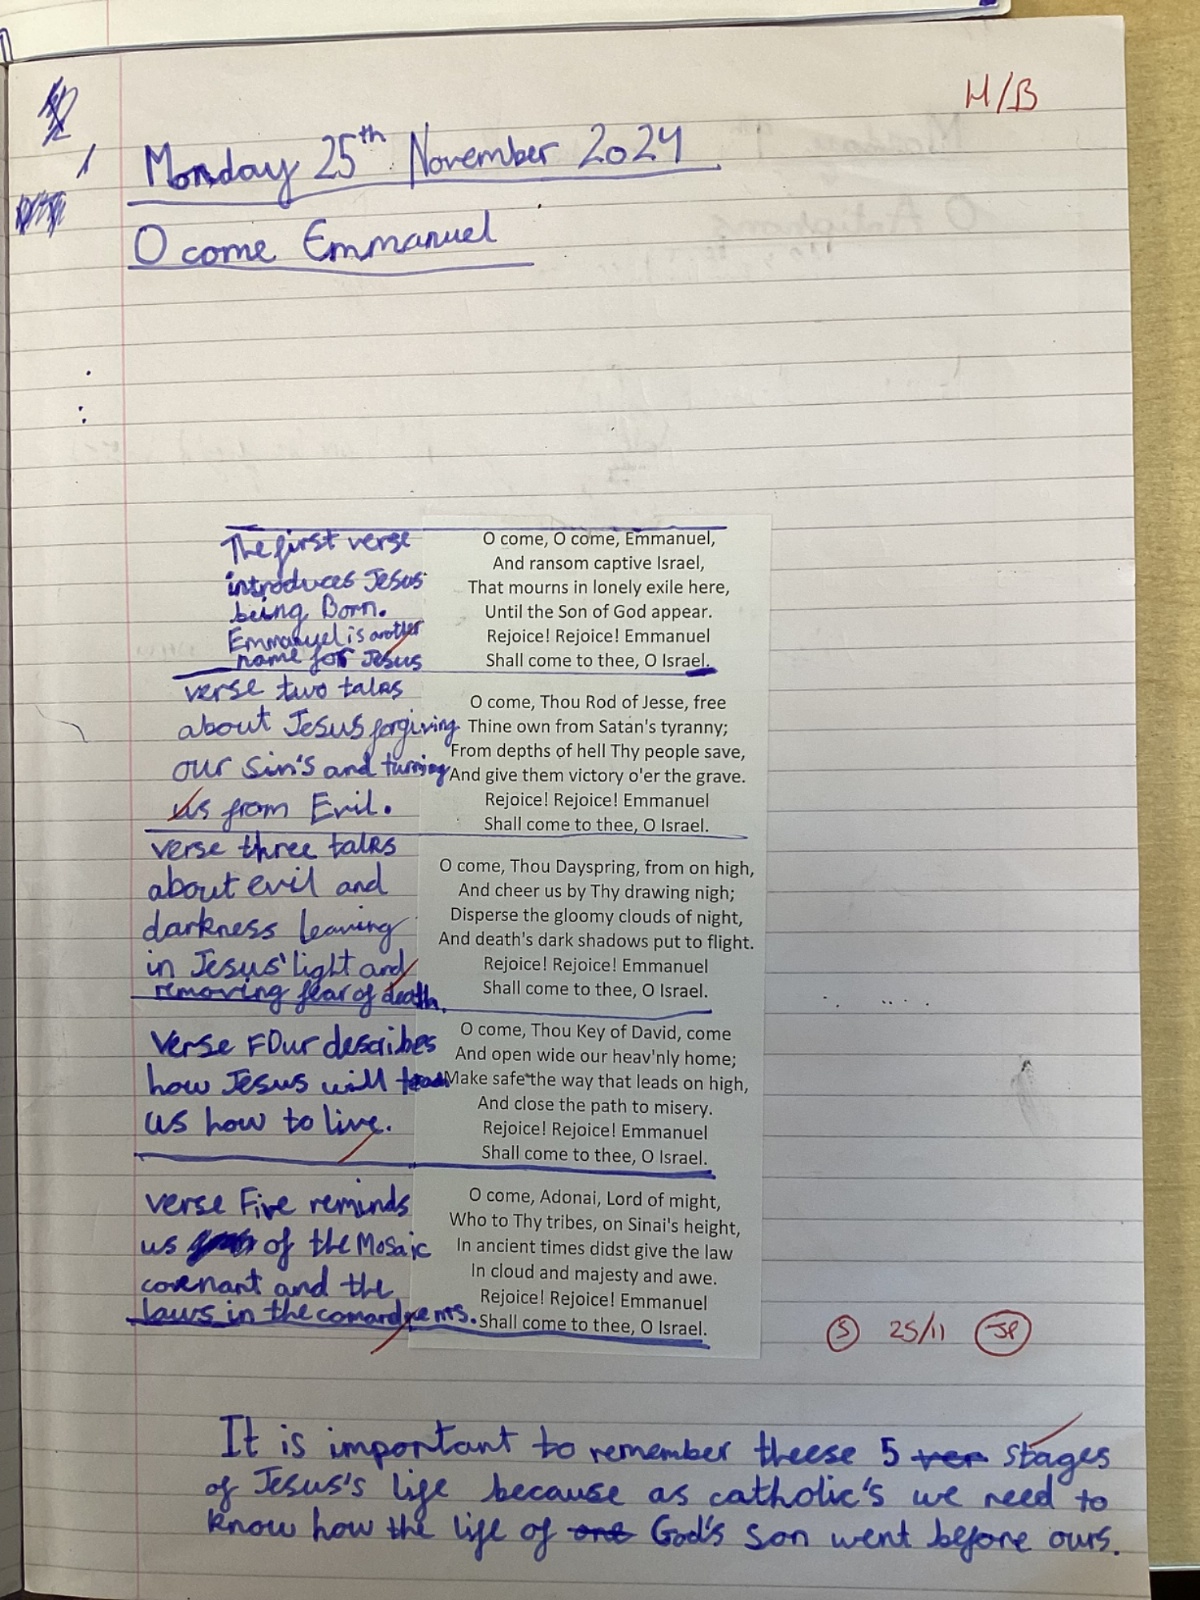 H/B
Monday 25th November 2024
O come Emmanuel
The first verse
introduces Jesus
being Born.
Emmanuel is another
name for Jesus
O come, O come, Emmanuel,
And ransom captive Israel,
That mourns in lonely exile here,
Until the Son of God appear.
Rejoice! Rejoice! Emmanuel
Shall come to thee, O Israel.
verse two talks
about Jesus forgiving
our sin's and turning
us from Evil.
O come, Thou Rod of Jesse, free
Thine own from Satan's tyranny;
From depths of hell Thy people save,
And give them victory o'er the grave.
Rejoice! Rejoice! Emmanuel
Shall come to thee, O Israel.
verse three talks
about evil and
darkness leaving
in Jesus' light and
removing fear of death.
O come, Thou Dayspring, from on high,
And cheer us by Thy drawing nigh;
Disperse the gloomy clouds of night,
And death's dark shadows put to flight.
Rejoice! Rejoice! Emmanuel
Shall come to thee, O Israel.
verse Four describes
how Jesus will
us how to live.
O come, Thou Key of David, come
And open wide our heav'nly home;
Make safe the way that leads on high,
And close the path to misery.
Rejoice! Rejoice! Emmanuel
Shall come to thee, O Israel.
verse Five reminds
us of the Mosaic
covenant and the
laws in the
O come, Adonai, Lord of might,
Who to Thy tribes, on Sinai's height,
In ancient times didst give the law
In cloud and majesty and awe.
Rejoice! Rejoice! Emmanuel
Shall come to thee, O Israel.
S 25/11 JP
It is important to remember theese 5 ver stages
of Jesus's life because as catholic's we need to
know how the life of one God's son went before ours.